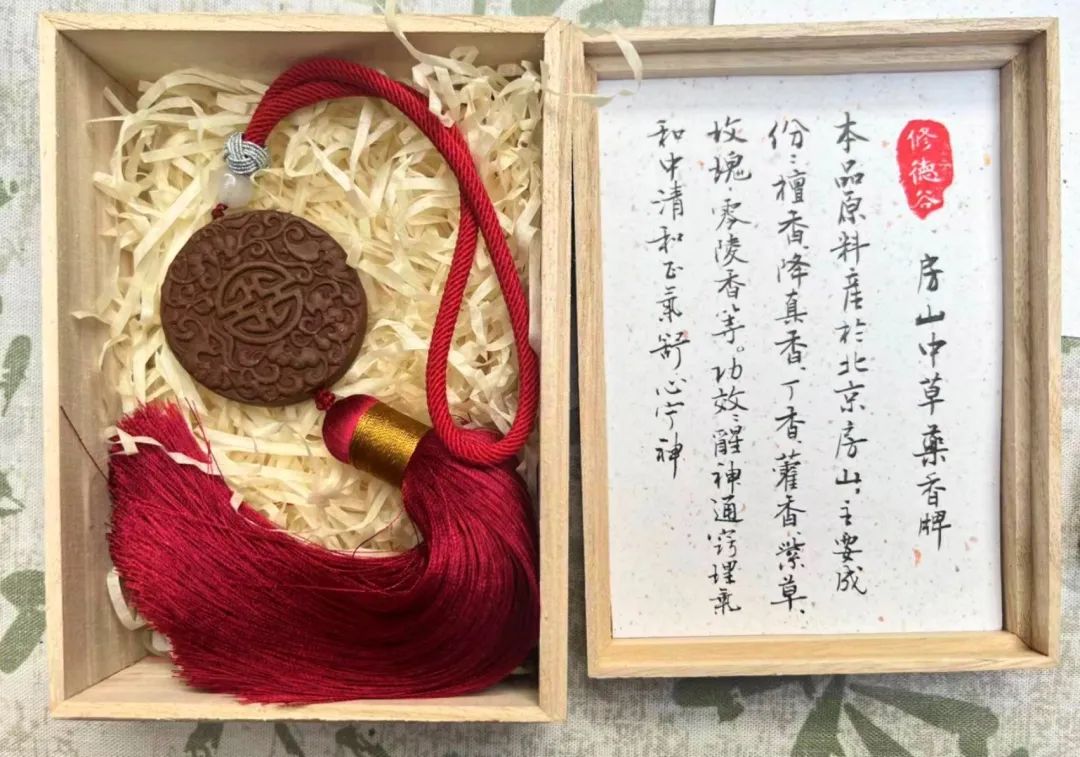 修德谷
房山中草藥香牌
本品原料產於北京房山,主要成
份:檀香、降真香、丁香、藿香、紫草、
玫瑰、零陵香等。功效:醒神通竅理氣
和中清和正氣舒心宁神